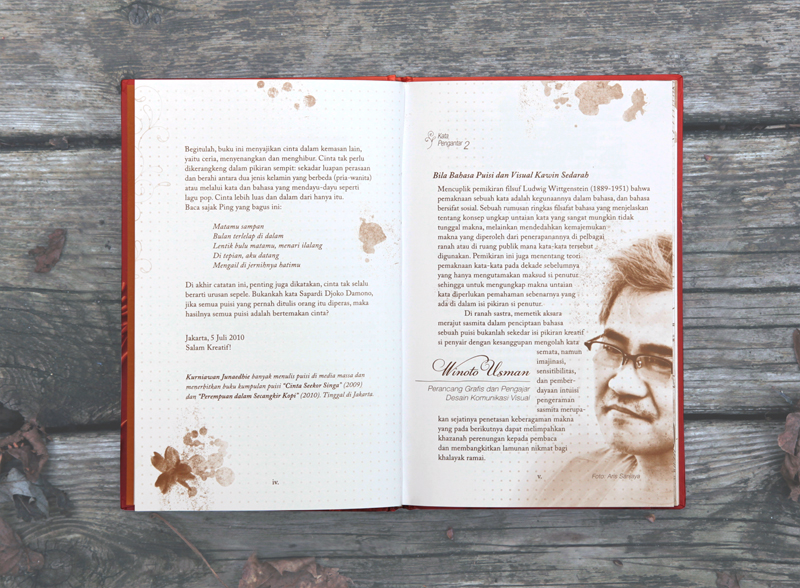 Begitulah, buku ini menyajikan cinta dalam kemasan lain,
yaitu ceria, menyenangkan dan menghibur. Cinta tak perlu
dikerangkeng dalam pikiran sempit: sekadar luapan perasaan
dan berahi antara dua jenis kelamin yang berbeda (pria-wanita)
atau melalui kata dan bahasa yang mendayu-dayu seperti
lagu pop. Cinta lebih luas dan dalam dari hanya itu.
Baca sajak Ping yang bagus ini:
Matamu sampan
Bulan terlelap di dalam
Lentik bulu matamu, menari ilalang
Di tepian, aku datang
Mengail di jernihnya hatimu
Di akhir catatan ini, penting juga dikatakan, cinta tak selalu
berarti urusan sepele. Bukankah kata Sapardi Djoko Damono,
jika semua puisi yang pernah ditulis orang itu diperas, maka
hasilnya semua puisi adalah bertemakan cinta?
Jakarta, 5 Juli 2010
Salam Kreatif!
Kurniawan Junaedhie banyak menulis puisi di media massa dan
menerbitkan buku kumpulan puisi "Cinta Seekor Singa" (2009)
dan "Perempuan dalam Secangkir Kopi" (2010). Tinggal di Jakarta.
iv.
Kata
Pengantar 2
Bila Bahasa Puisi dan Visual Kawin Sedarah
Mencuplik pemikiran filsuf Ludwig Wittgenstein (1889-1951) bahwa
pemaknaan sebuah kata adalah kegunaannya dalam bahasa, dan bahasa
bersifat sosial. Sebuah rumusan ringkas filsafat bahasa yang menjelaskan
tentang konsep ungkap untaian kata yang sangat mungkin tidak
tunggal makna, melainkan mendedahkan kemajemukan
makna yang diperoleh dari penerapannya di pelbagai
ranah atau di ruang publik mana kata-kata tersebut
digunakan. Pemikiran ini juga menentang teori
pemaknaan kata-kata pada dekade sebelumnya
yang hanya mengutamakan maksud si penutur
sehingga untuk mengungkap makna untaian
kata diperlukan pemahaman sebenarnya yang
ada di dalam isi pikiran si penutur.
Di ranah sastra, memetik aksara
merajut sasmita dalam penciptaan bahasa
sebuah puisi bukanlah sekedar isi pikiran kreatif
si penyair dengan kesanggupan mengolah kata
semata, namun
imajinasi,
sensitibilitas,
dan pember-
dayaan intuisi
pengeraman
sasmita merupa-
Winoto Usman
Perancang Grafis dan Pengajar
Desain Komunikasi Visual
kan sejatinya penetasan keberagaman makna
yang pada berikutnya dapat melimpahkan
khazanah perenungan kepada pembaca
dan membangkitkan lamunan nikmat bagi
khalayak ramai.
v.
Foto: